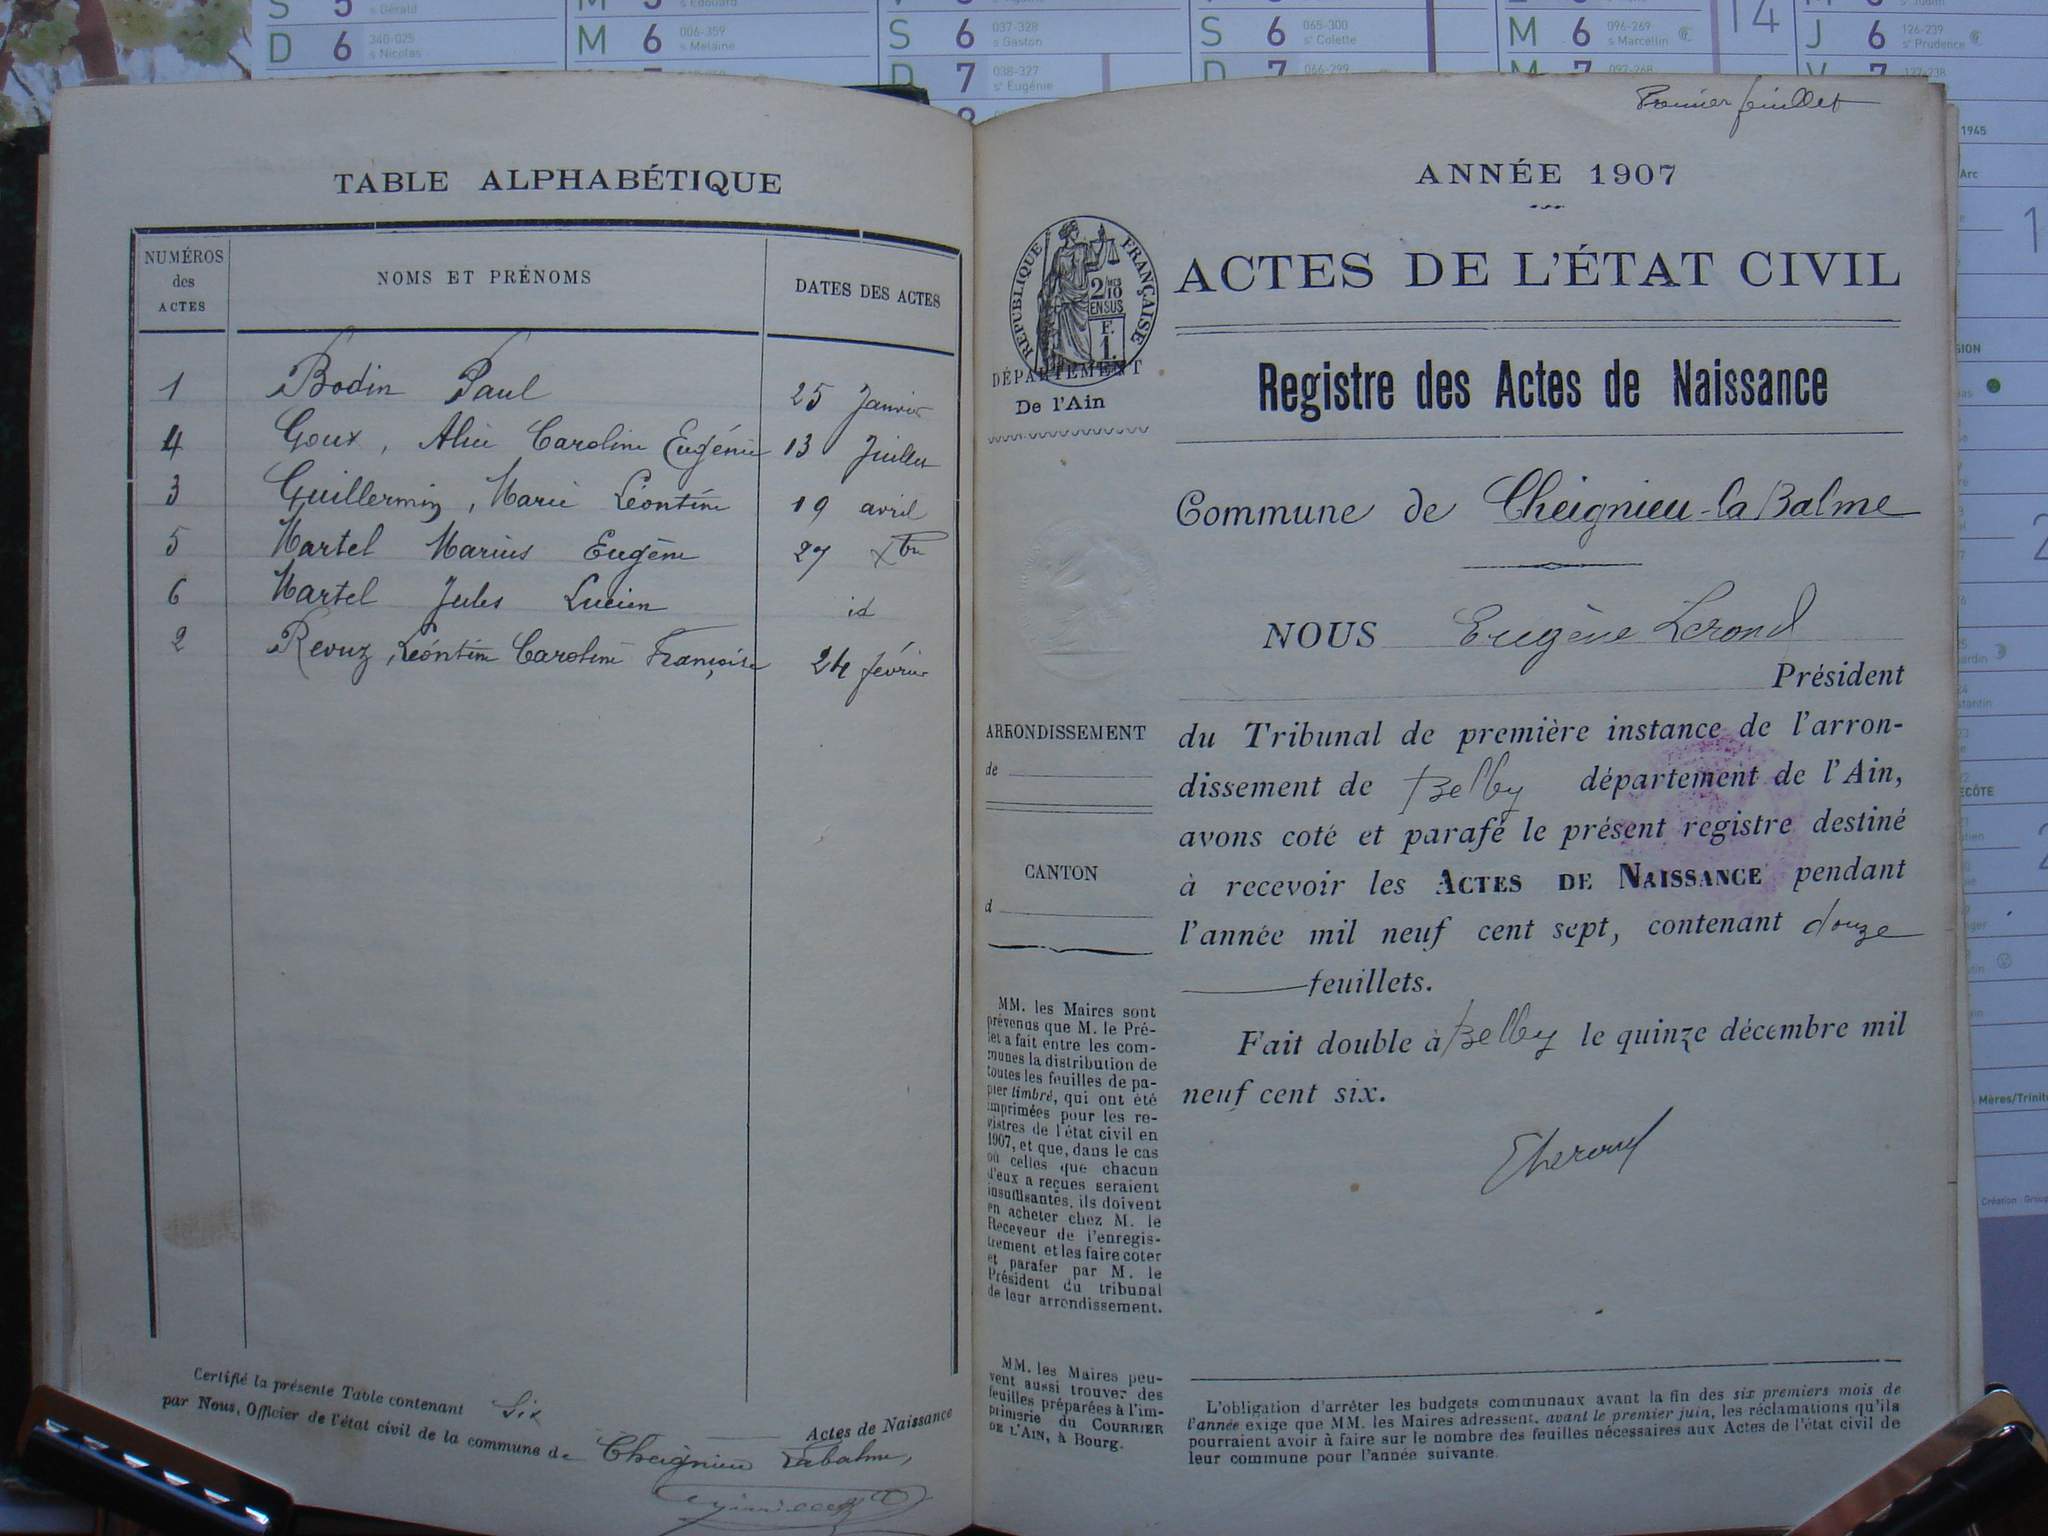 S 5 s Gérald
D 6 340-025 s Nicolas
M 6 006-359 s Melaine
S 6 037-328 s Gaston
D 7 038-327 sᵉ Eugénie
S 6 065-300 sᵉ Colette
D 7 066-299
M 6 096-269 s Marcellin
14
J 6 126-239 sᵉ Prudence
TABLE ALPHABÉTIQUE
NUMÉROS des ACTES
NOMS ET PRÉNOMS
DATES DES ACTES
1 Bodin Paul 25 Janvier
4 Goux, Alice Caroline Eugénie 13 Juillet
3 Guillermin, Marie Léontine 19 avril
5 Martel Marius Eugène 27 Xbre
6 Martel Jules Lucien id
2 Revuz, Léontine Caroline Françoise 24 février
Certifié la présente Table contenant Six Actes de Naissance
par Nous, Officier de l'état civil de la commune de Cheignieu Labalme,
Premier feuillet
ANNÉE 1907
RÉPUBLIQUE FRANÇAISE
2/10 EN SUS
F. 1.
ACTES DE L'ÉTAT CIVIL
DÉPARTEMENT
De l'Ain
Registre des Actes de Naissance
Commune de Cheignieu-la Balme
NOUS Eugène Lerond
Président
ARRONDISSEMENT
de
CANTON
d
du Tribunal de première instance de l'arron-
dissement de Belley département de l'Ain,
avons coté et parafé le présent registre destiné
à recevoir les ACTES DE NAISSANCE pendant
l'année mil neuf cent sept, contenant douze
feuillets.
Fait double à Belley le quinze décembre mil
neuf cent six.
MM. les Maires sont
prévenus que M. le Pré-
fet a fait entre les com-
munes la distribution de
toutes les feuilles de pa-
pier timbré, qui ont été
imprimées pour les re-
gistres de l'état civil en
1907, et que, dans le cas
où celles que chacun
d'eux a reçues seraient
insuffisantes, ils doivent
en acheter chez M. le
Receveur de l'enregis-
trement et les faire coter
et parafer par M. le
Président du tribunal
de leur arrondissement.
MM. les Maires peu-
vent aussi trouver des
feuilles préparées à l'im-
primerie du COURRIER
DE L'AIN, à Bourg.
L'obligation d'arrêter les budgets communaux avant la fin des six premiers mois de
l'année exige que MM. les Maires adressent, avant le premier juin, les réclamations qu'ils
pourraient avoir à faire sur le nombre des feuilles nécessaires aux Actes de l'état civil de
leur commune pour l'année suivante.
1945
Mères/Trinit